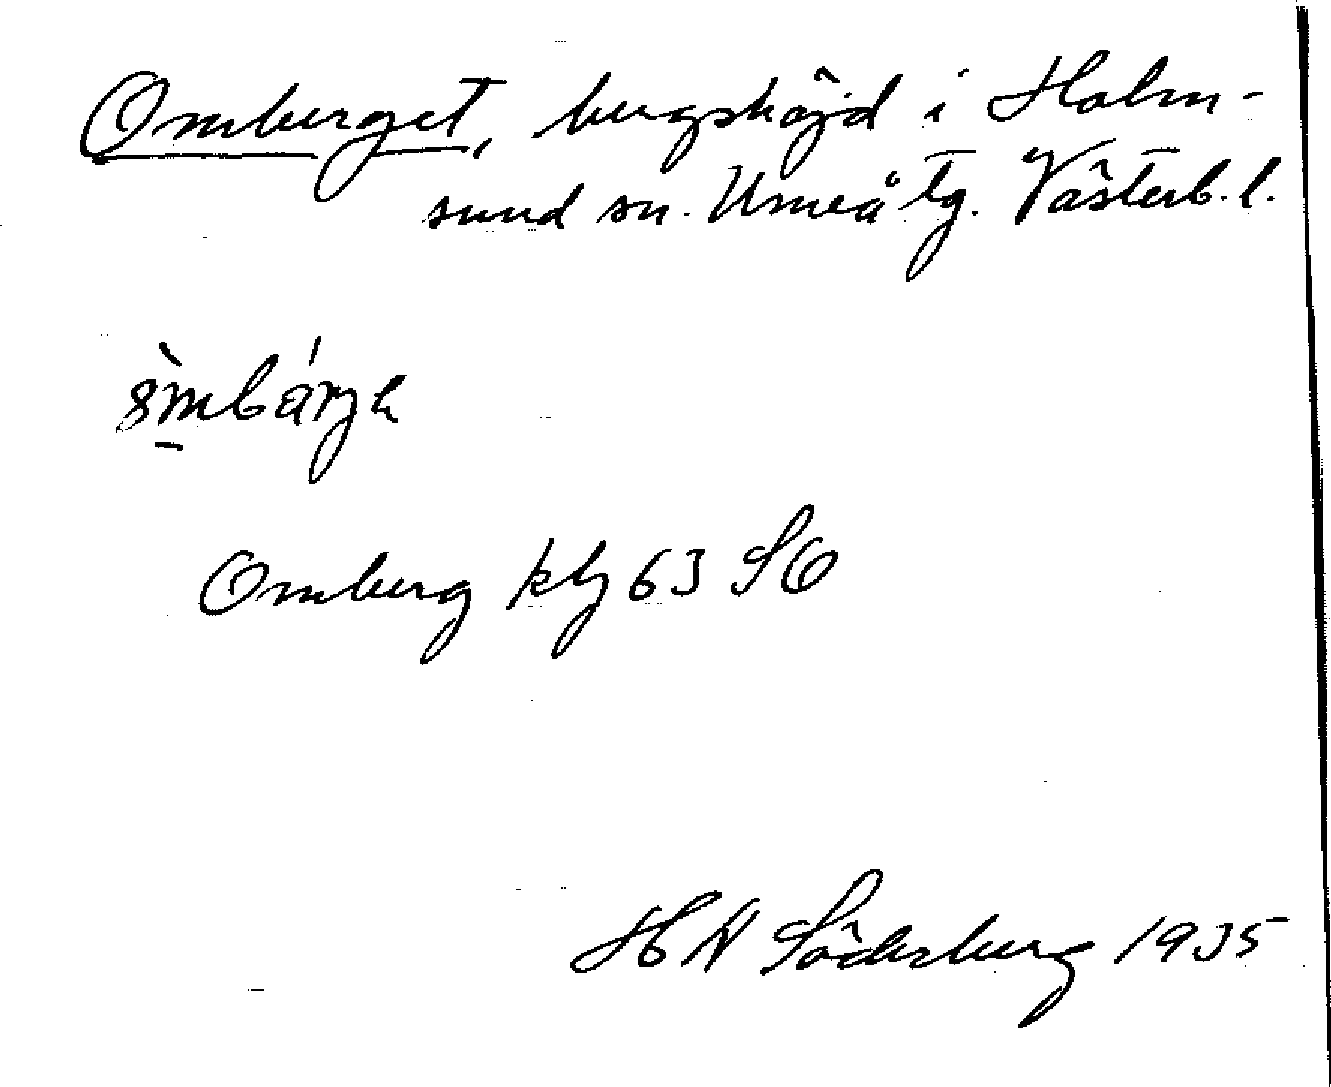 Omberget, bergshöjd i Holm-
sund sn. Umeå tg. Västerb. l.
Omberg kbj 63 SO
H N Söderberg 1935